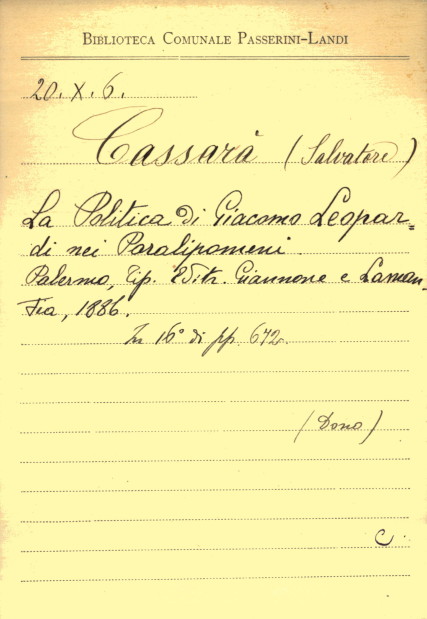 BIBLIOTECA COMUNALE PASSERINI-LANDI
20. X. 6.
Cassarà (Salvatore)
La Politica di Giacomo Leopar=
di nei Paralipomeni
Palermo, Tip. Editr. Giannone e Laman=
tia, 1886.
In 16° di pp. 672.
(Dono)
C.